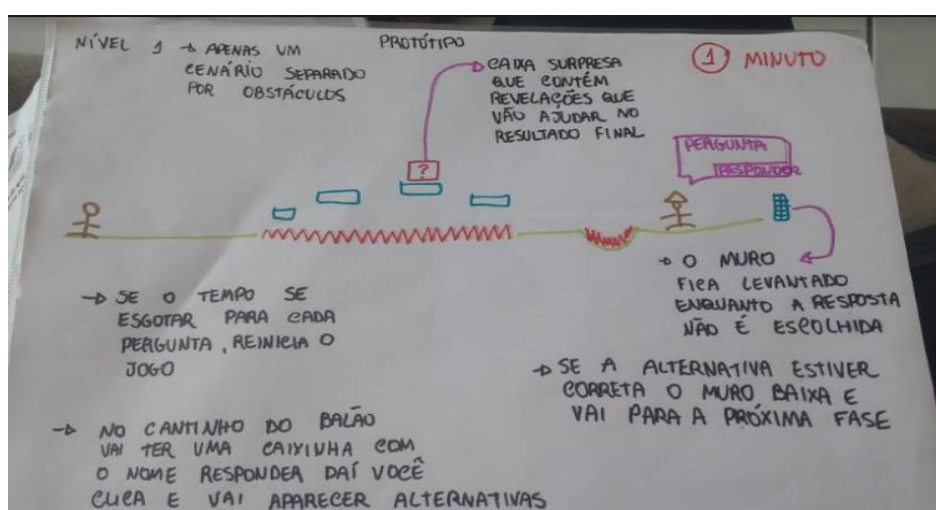 NÍVEL 1 → APENAS UM
CENÁRIO SEPARADO
POR OBSTÁCULOS
PROTÓTIPO
→ CAIXA SURPRESA
QUE CONTÉM
REVELAÇÕES QUE
VÃO AJUDAR NO
RESULTADO FINAL
1 MINUTO
?
PERGUNTA
RESPONDER
→ O MURO
FICA LEVANTADO
ENQUANTO A RESPOSTA
NÃO É ESCOLHIDA
→ SE O TEMPO SE
ESGOTAR PARA CADA
PERGUNTA, REINICIA O
JOGO
→ SE A ALTERNATIVA ESTIVER
CORRETA O MURO BAIXA E
VAI PARA A PRÓXIMA FASE
→ NO CANTINHO DO BALÃO
VAI TER UMA CAIXINHA COM
O NOME RESPONDER DAÍ VOCÊ
CLICA E VAI APARECER ALTERNATIVAS